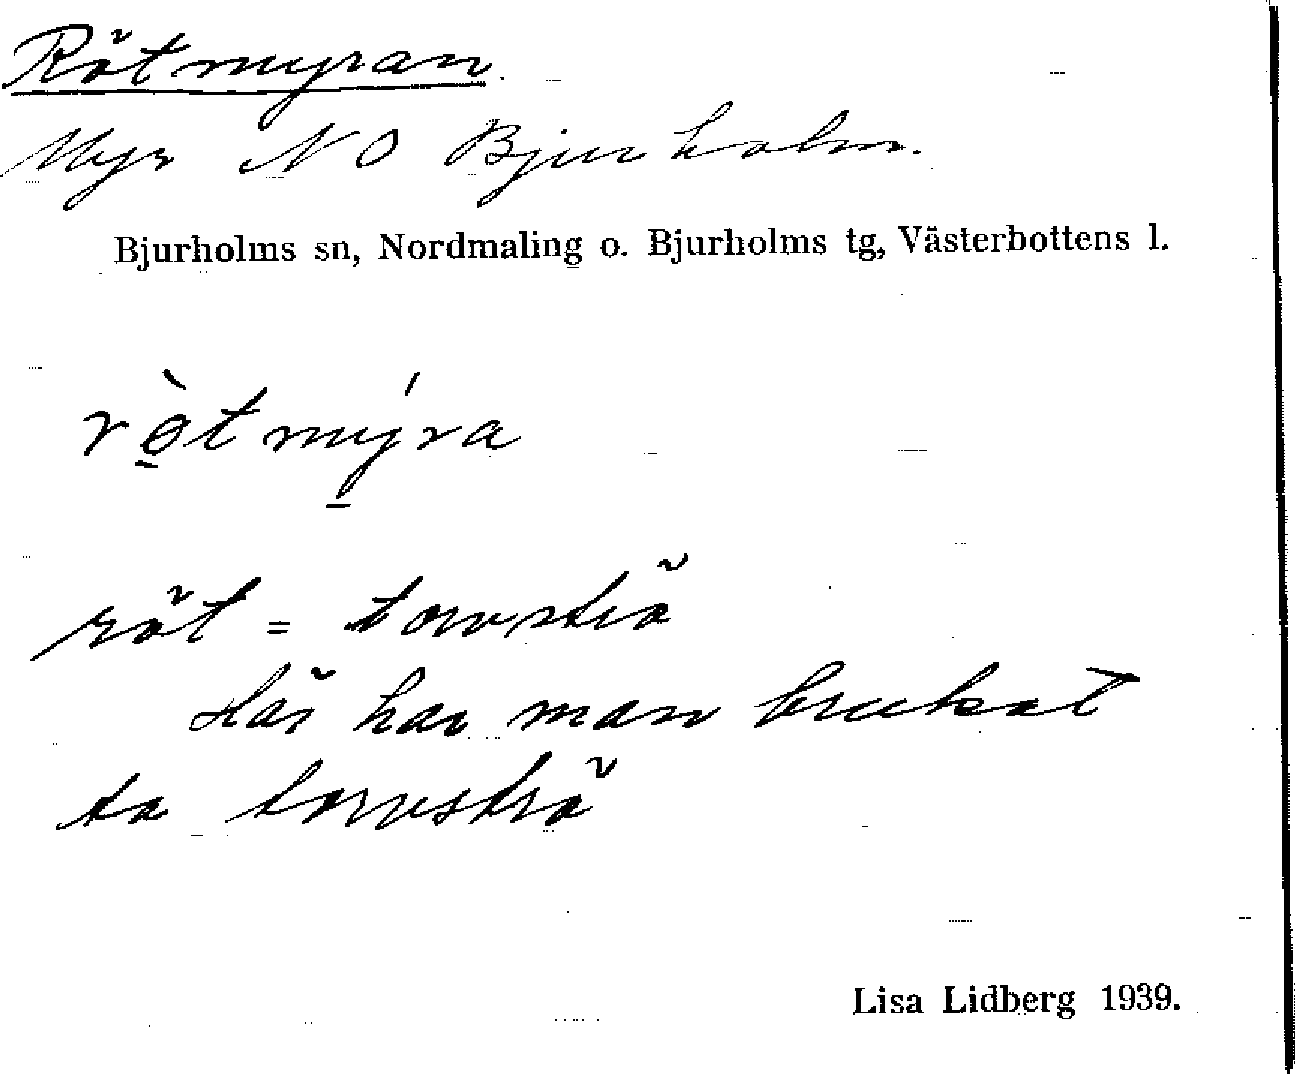 Rötmyran
Myr NO Bjurholm.
Bjurholms sn, Nordmaling o. Bjurholms tg, Västerbottens l.
rö̀tmýra
röt = torvströ
Här har man brukat
ta torvströ
Lisa Lidberg 1939.